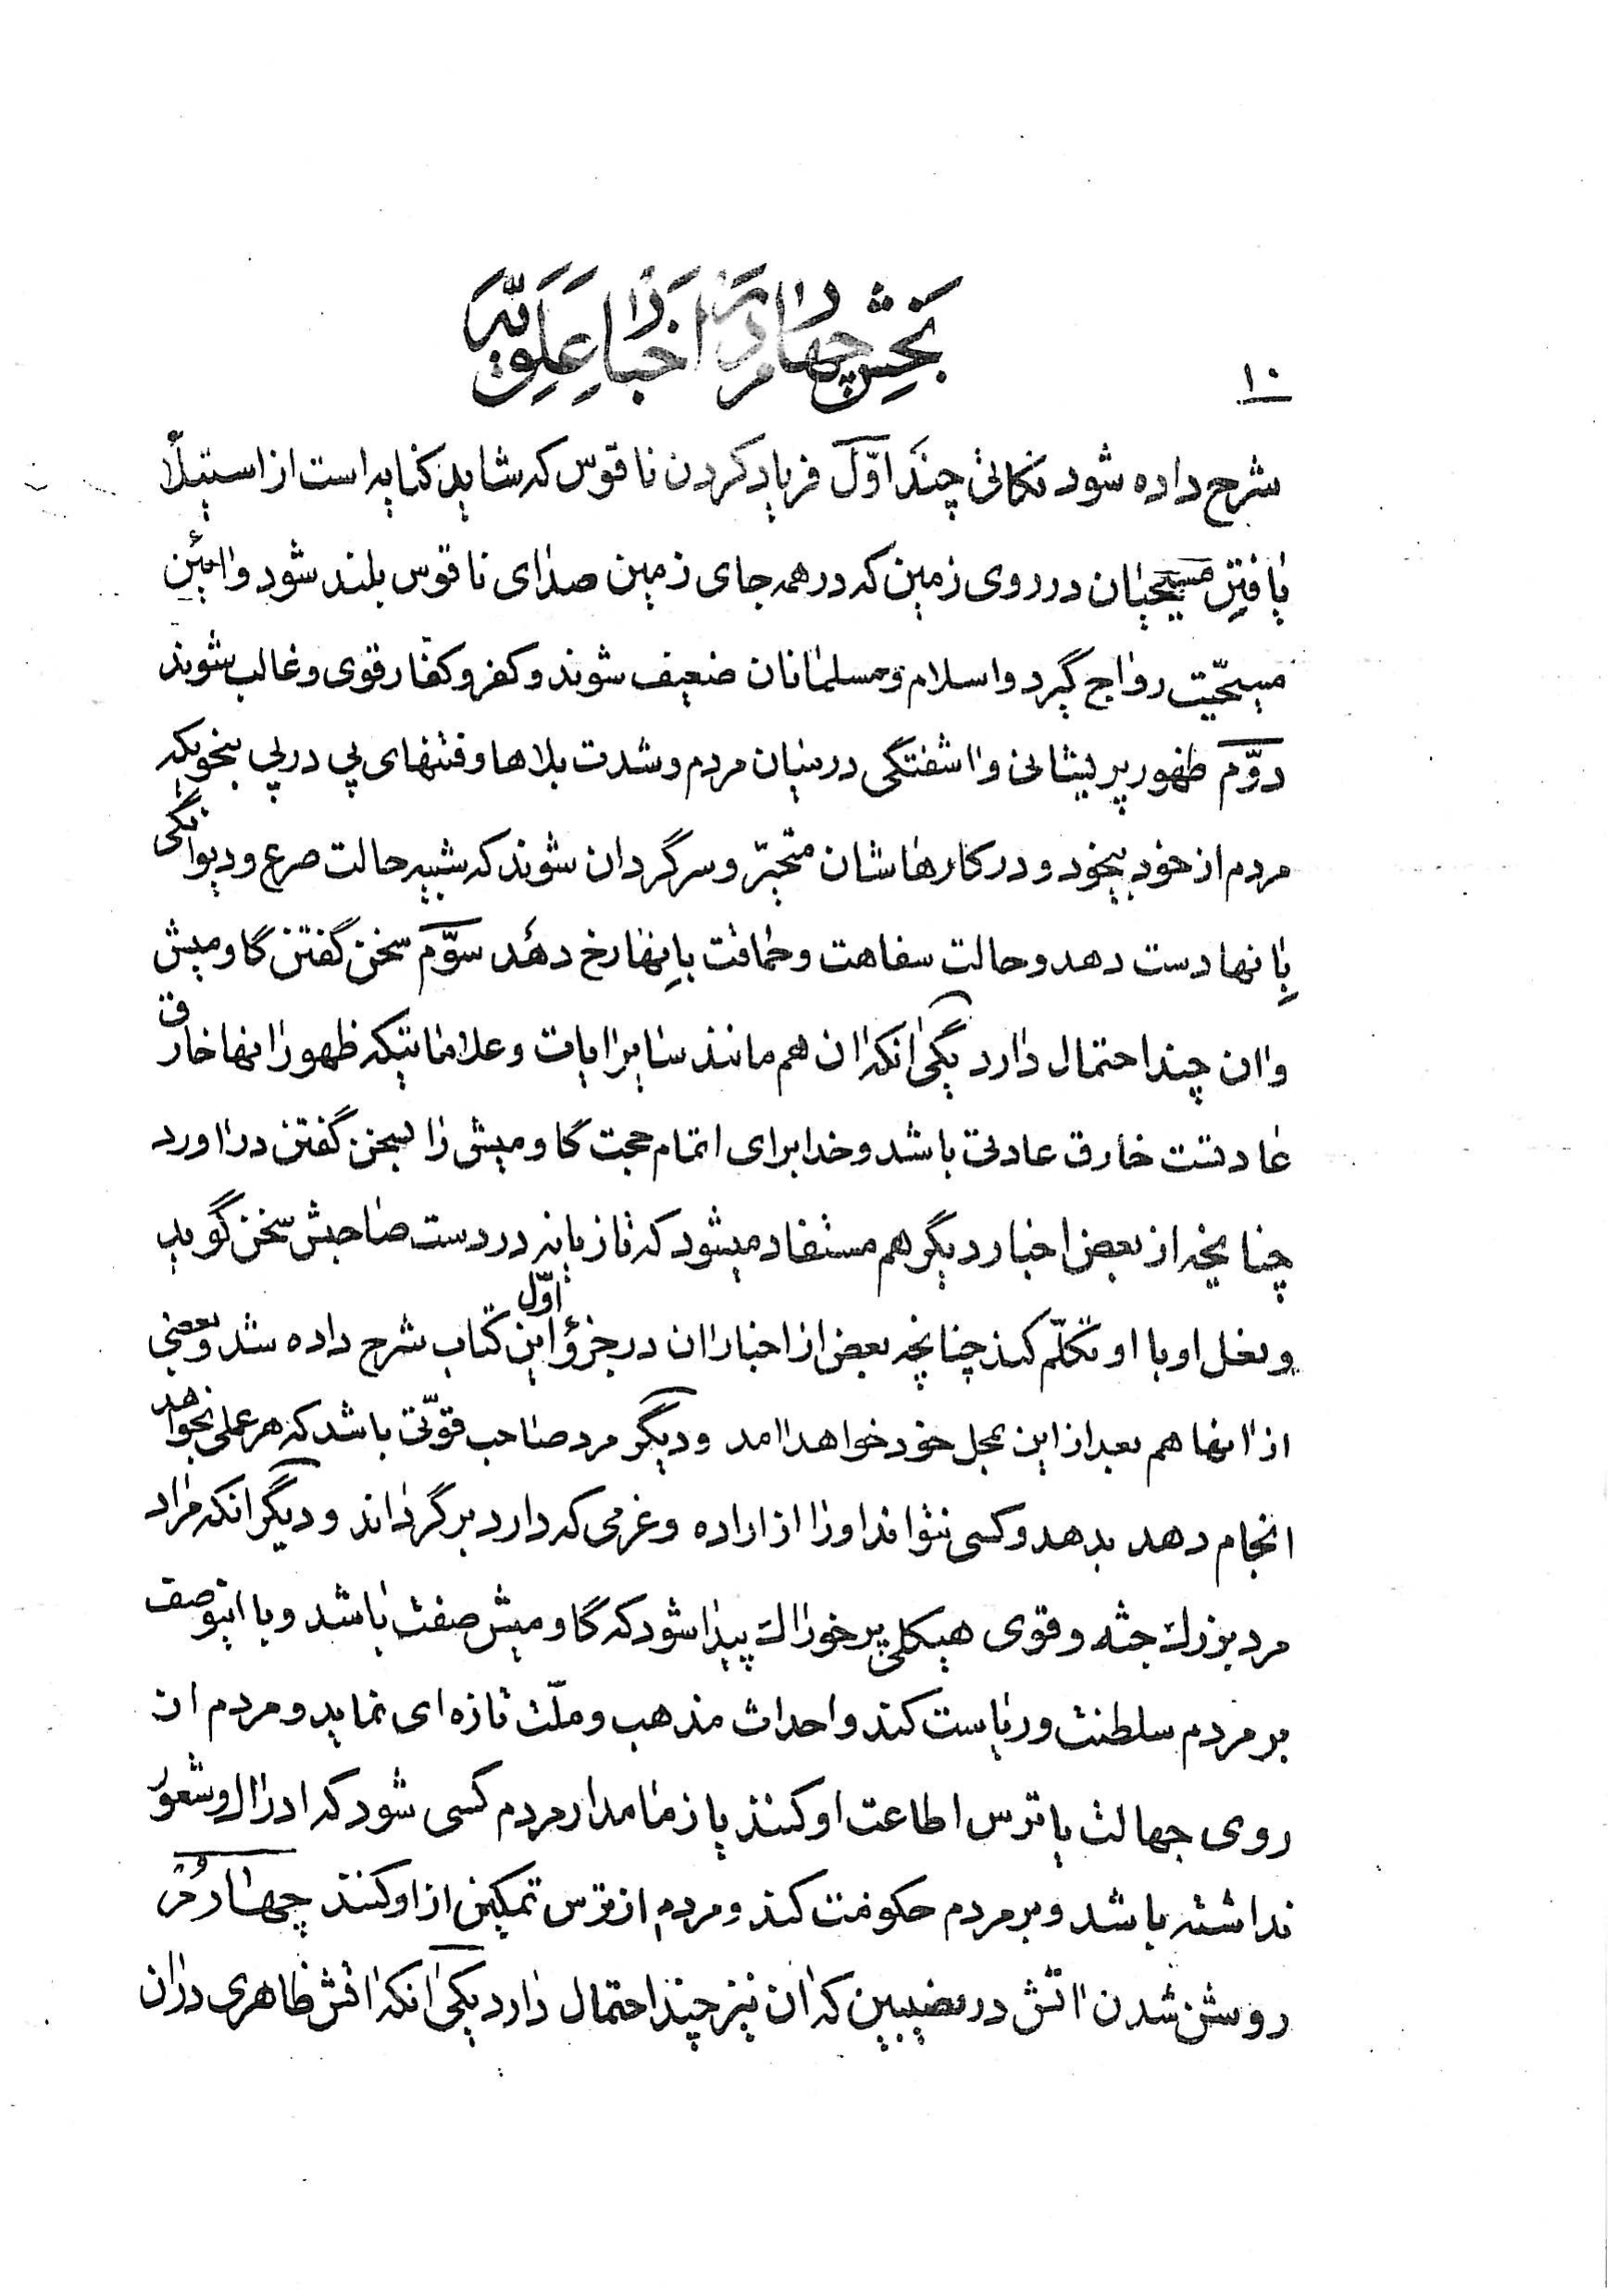 بخش چهارم از اخبار علویه
۱۰
شرح داده شود نکاتی چند اوّل فریاد کردن ناقوس که شاید کنایه است از استیلا
یافتن مسیحیان در روی زمین که در همه جای زمین صدای ناقوس بلند شود و ائین
مسیحّیت رواج گیرد و اسلام و مسلمانان ضعیف شوند و کفر و کفّار قوی و غالب شوند
دوّم ظهور پریشانی و اشفتگی در میان مردم و شدت بلاها و فتنهای پی در پی بنحویکه
مردم از خود بیخود و در کارهاشان متحیّر و سرگردان شوند که شبیه حالت صرع و دیوانگی
بانها دست دهد و حالت سفاهت و حماقت باینها رخ دهد سوّم سخن گفتن گاومیش
و ان چند احتمال دارد یکی انکه ان هم مانند سایر ایات و علاماتیکه ظهور انها خارق
عادتست خارق عادتی باشد و خدا برای اتمام حجت گاومیش را بسخن گفتن در اورد
چنانچه از بعض اخبار دیگر هم مستفاد میشود که تازیانه در دست صاحبش سخن گوید
و نعل او با او تکلّم کند چنانچه بعض از اخبار ان در جزؤ اوّل این کتاب شرح داده شد و بعضی
از انها هم بعد از این بمحل خود خواهد امد و دیگر مرد صاحب قوّتی باشد که هر عملی بخواهد
انجام دهد بدهد و کسی نتواند او را از اراده و عزمی که دارد برگرداند و دیگر انکه مراد
مرد بزرك جثه و قوی هیکلی پر خوراك پیدا شود که گاومیش صفت باشد و با اینوصف
بر مردم سلطنت و ریاست کند و احداث مذهب و ملّت تازه ای نماید و مردم از
روی جهالت یا ترس اطاعت او کنند یا زمامدار مردم کسی شود که ادراك و شعور
نداشته باشد و بر مردم حکومت کند و مردم از ترس تمکین از او کنند چهارم
روشن شدن اتش در نصیبین که ان نیز چند احتمال دارد یکی انکه اتش ظاهری در ان